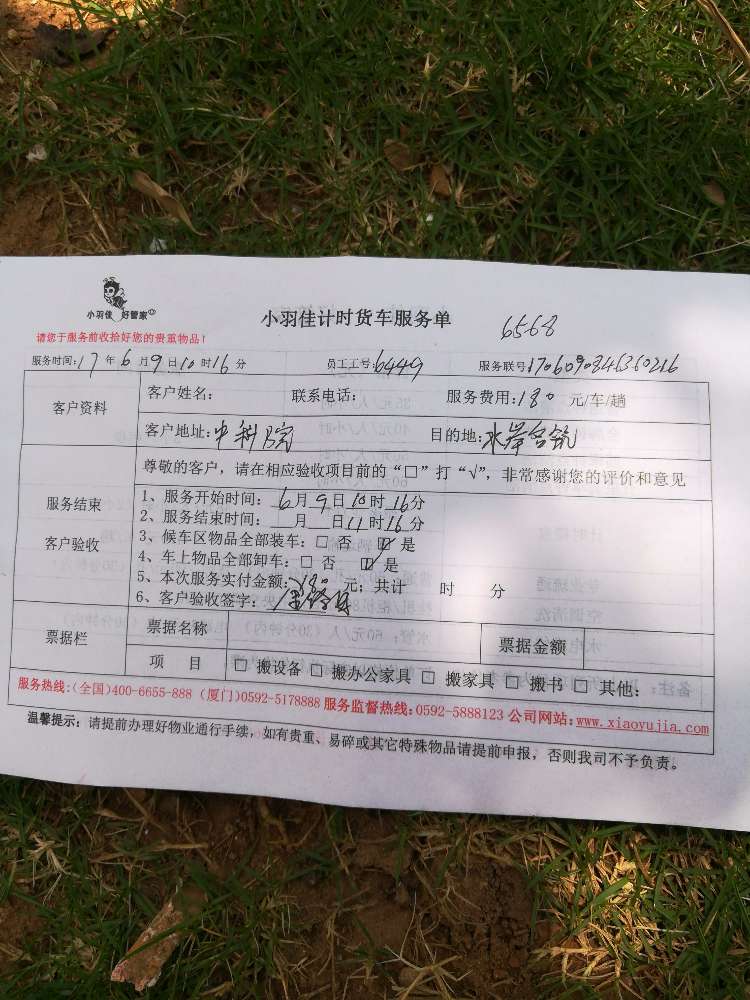 小羽佳 好管家
小羽佳计时货车服务单
6568
请您于服务前收拾好您的贵重物品！
服务时间：17年6月9日10时16分 员工工号：6449 服务联号：1706090846360216
客户资料
客户姓名： 联系电话： 服务费用：180 元/车/趟
客户地址：中科院 目的地：水岸名筑
服务结束
客户验收
尊敬的客户，请在相应验收项目前的“□”打“√”，非常感谢您的评价和意见
1、服务开始时间：6月9日10时16分
2、服务结束时间： 月 日11时16分
3、候车区物品全部装车：□ 否 ☑ 是
4、车上物品全部卸车：□ 否 ☑ 是
5、本次服务实付金额：180 元；共计 时 分
6、客户验收签字：
票据栏
票据名称 票据金额
项 目 □ 搬设备 □ 搬办公家具 □ 搬家具 □ 搬书 □ 其他：
服务热线：(全国)400-6655-888 (厦门)0592-5178888 服务监督热线：0592-5888123 公司网站：www.xiaoyujia.com
温馨提示：请提前办理好物业通行手续，如有贵重、易碎或其它特殊物品请提前申报，否则我司不予负责。